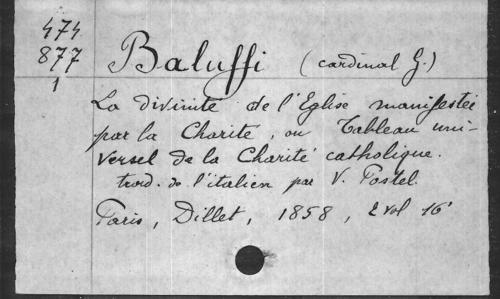 474
877
1
Baluffi (cardinal G.)
La divinité de l'Eglise manifestée
par la Charité, ou Tableau uni-
versel de la Charité catholique.
trad. de l'italien par V. Postel.
Paris, Dillet, 1858, 2 vol 16°